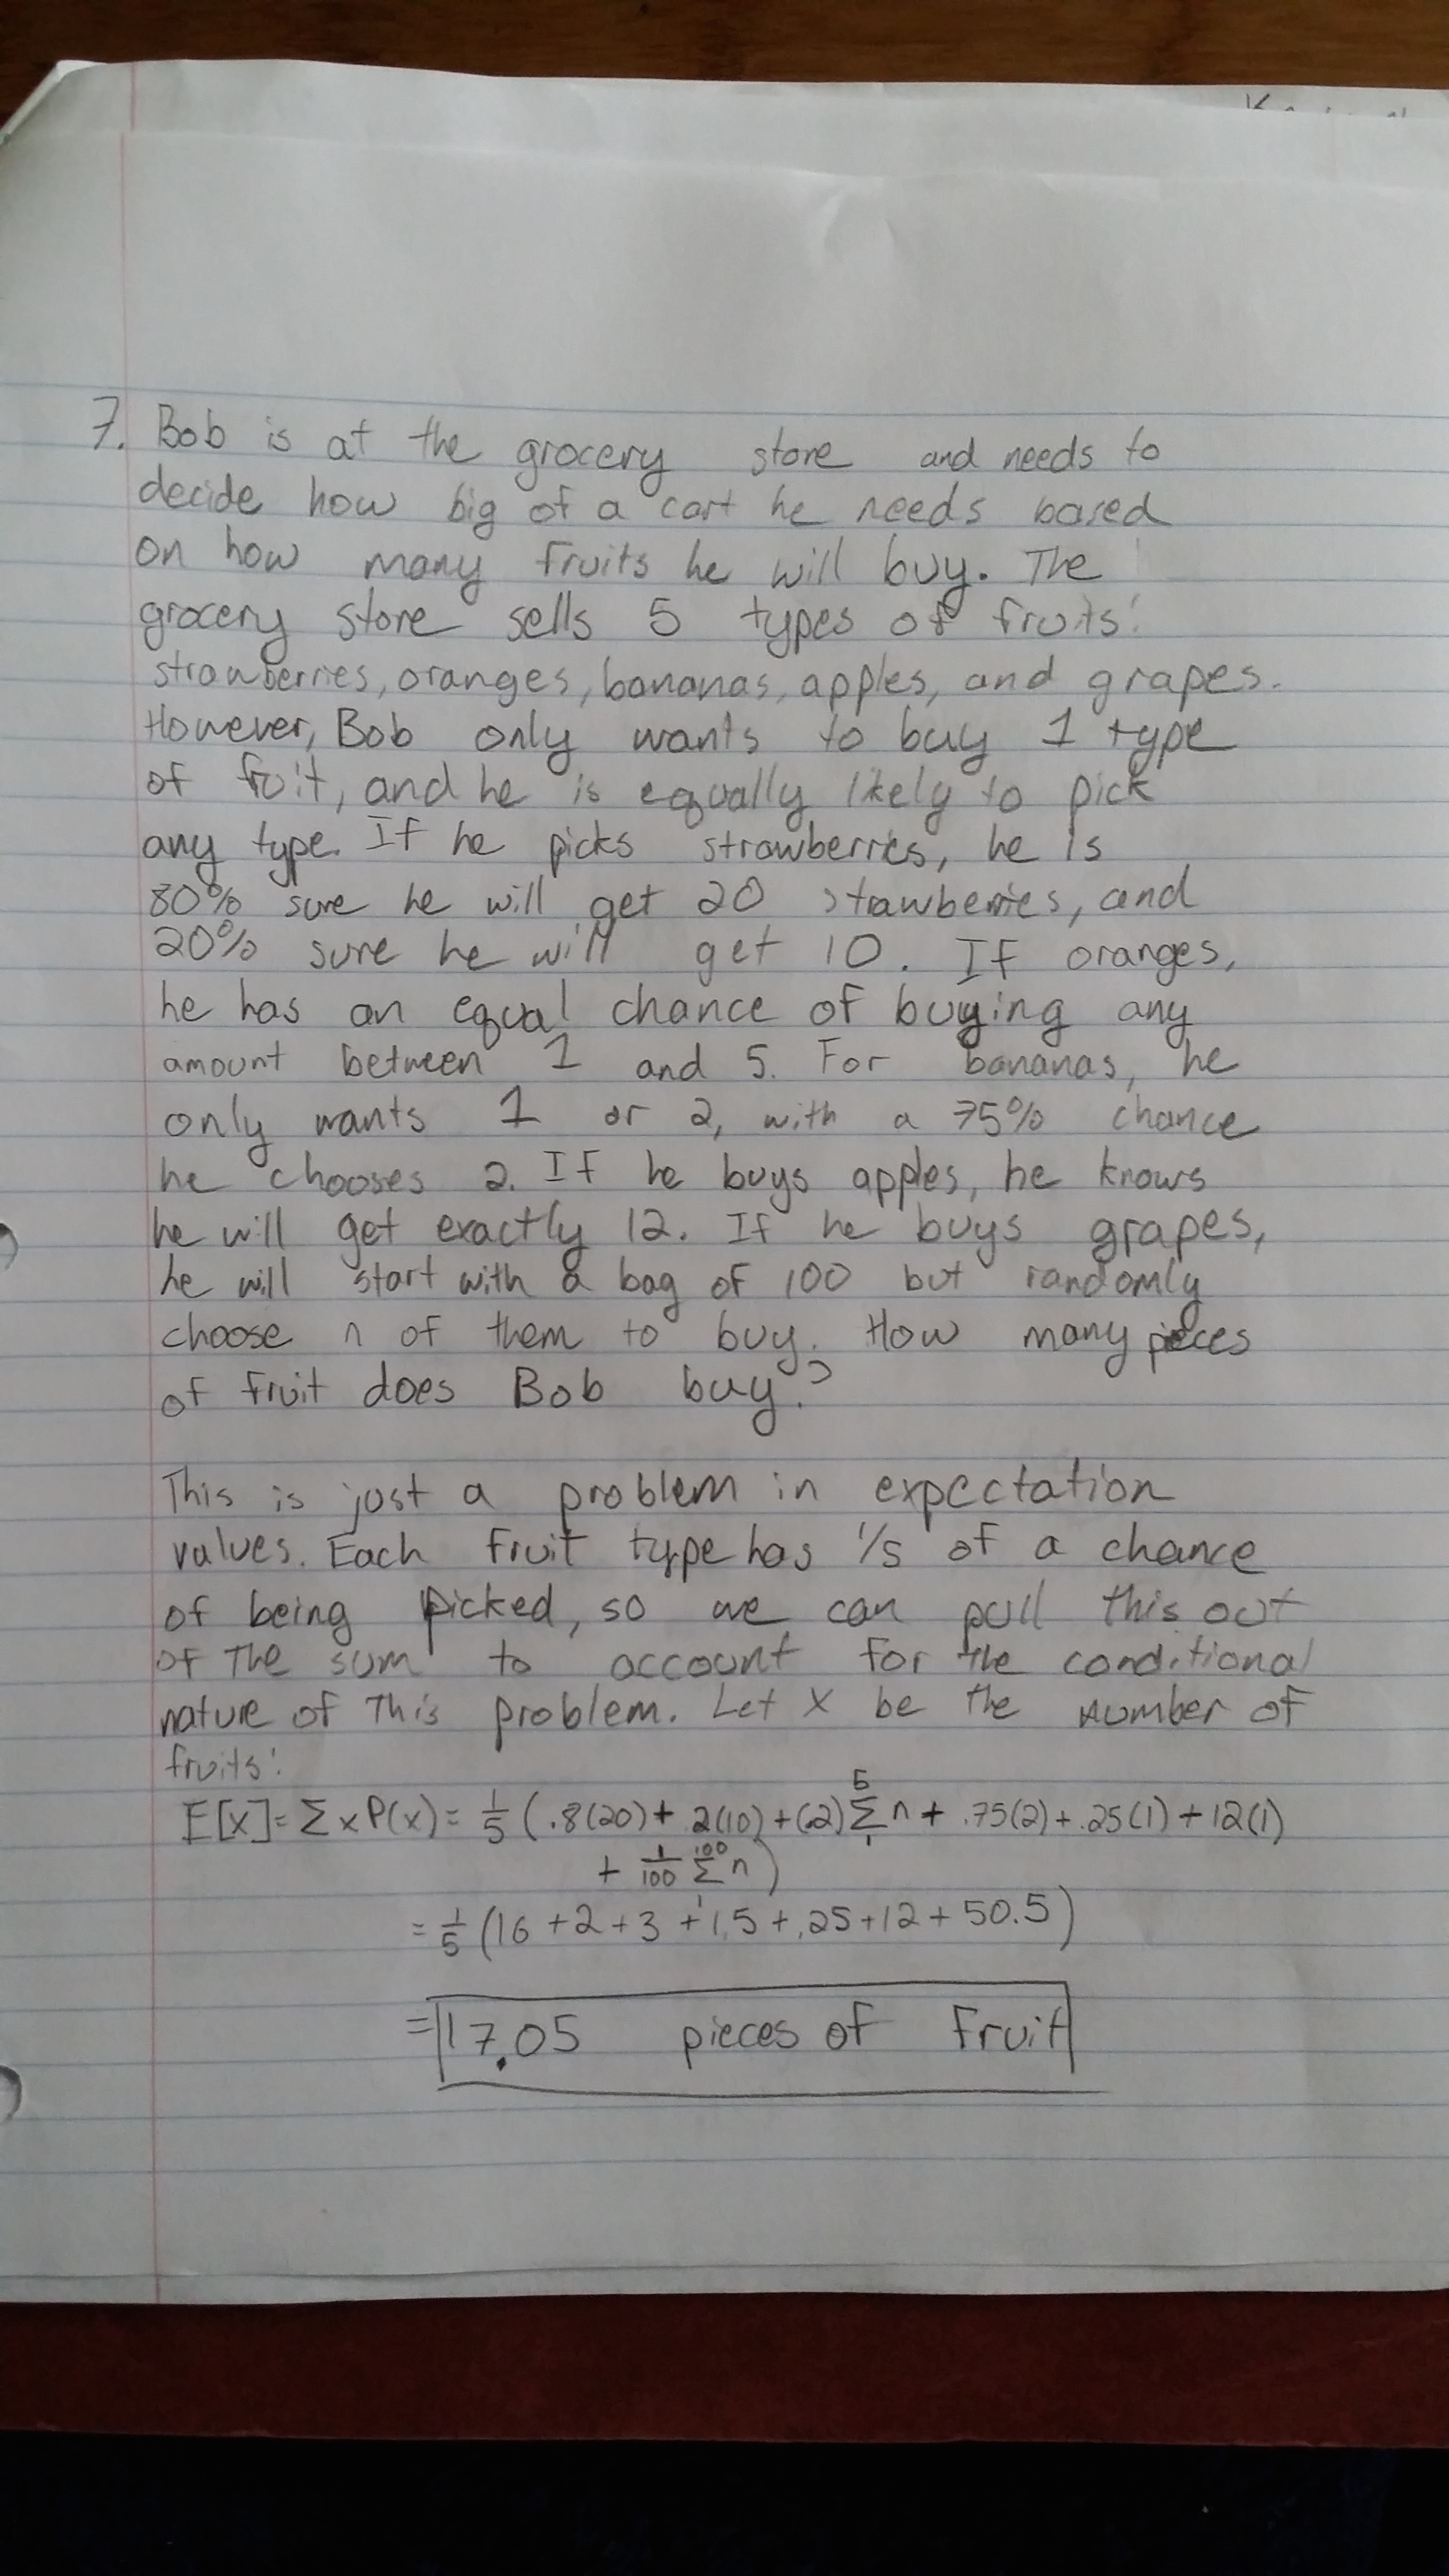 7. Bob is at the grocery store and needs to
decide how big of a cart he needs based
on how many fruits he will buy. The
grocery store sells 5 types of fruits:
strawberries, oranges, bananas, apples, and grapes.
However, Bob only wants to buy 1 type
of fruit, and he is equally likely to pick
any type. If he picks strawberries, he is
80% sure he will get 20 strawberries, and
20% sure he will get 10. If oranges,
he has an equal chance of buying any
amount between 1 and 5. For bananas, he
only wants 1 or 2, with a 75% chance
he chooses 2. If he buys apples, he knows
he will get exactly 12. If he buys grapes,
he will start with a bag of 100 but randomly
choose n of them to buy. How many pieces
of fruit does Bob buy?
This is just a problem in expectation
values. Each fruit type has 1/5 of a chance
of being picked, so we can pull this out
of the sum to account for the conditional
nature of this problem. Let X be the number of
fruits:
E[x] = Σ x P(x) = 1/5 (.8(20) + .2(10) + (.2) Σ₁⁵ n + .75(2) + .25(1) + 12(1)
+ 1/100 Σ₁¹⁰⁰ n)
= 1/5 (16 + 2 + 3 + 1.5 + .25 + 12 + 50.5)
= 17.05 pieces of fruit